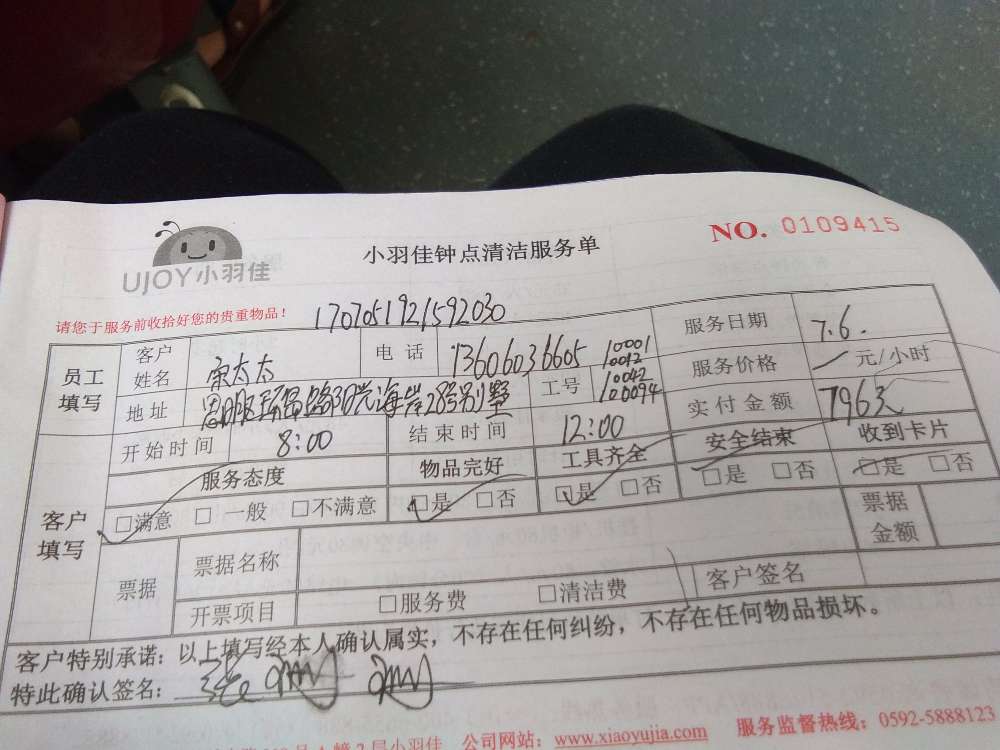 UJOY小羽佳
小羽佳钟点清洁服务单
NO. 0109415
请您于服务前收拾好您的贵重物品！
员工填写
客户姓名
太太
电话
13606036605
服务日期
7.6.
地址
28号别墅
工号
10001
10012
10042
100094
服务价格
元/小时
开始时间
8:00
结束时间
12:00
实付金额
796元
客户填写
服务态度
物品完好
工具齐全
安全结束
收到卡片
□满意 □一般 □不满意
□是 □否
□是 □否
□是 □否
□是 □否
票据
票据名称
票据金额
开票项目
□服务费 □清洁费
客户签名
客户特别承诺：以上填写经本人确认属实，不存在任何纠纷，不存在任何物品损坏。
特此确认签名：
2层小羽佳 公司网站：www.xiaoyujia.com 服务监督热线：0592-5888123